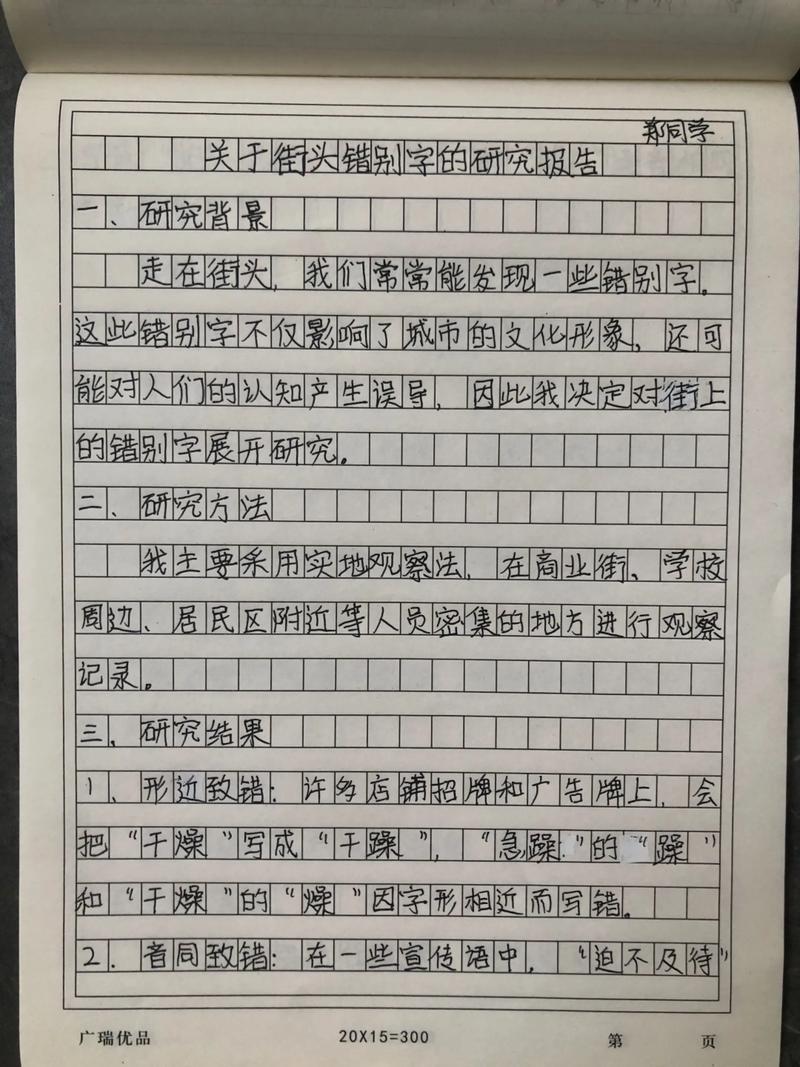 郑同学
关于街头错别字的研究报告
一、研究背景
走在街头,我们常常能发现一些错别字。
这此错别字不仅影响了城市的文化形象,还可
能对人们的认知产生误导,因此我决定对街上
的错别字展开研究。
二、研究方法
我主要采用实地观察法,在商业街、学校
周边、居民区附近等人员密集的地方进行观察
记录。
三、研究结果
1、形近致错:许多店铺招牌和广告牌上,会
把“干燥”写成“干躁”,“急躁”的“躁”
和“干燥”的“燥”因字形相近而写错。
2.音同致错:在一些宣传语中,“迫不及待”
广瑞优品
20X15=300
第 页